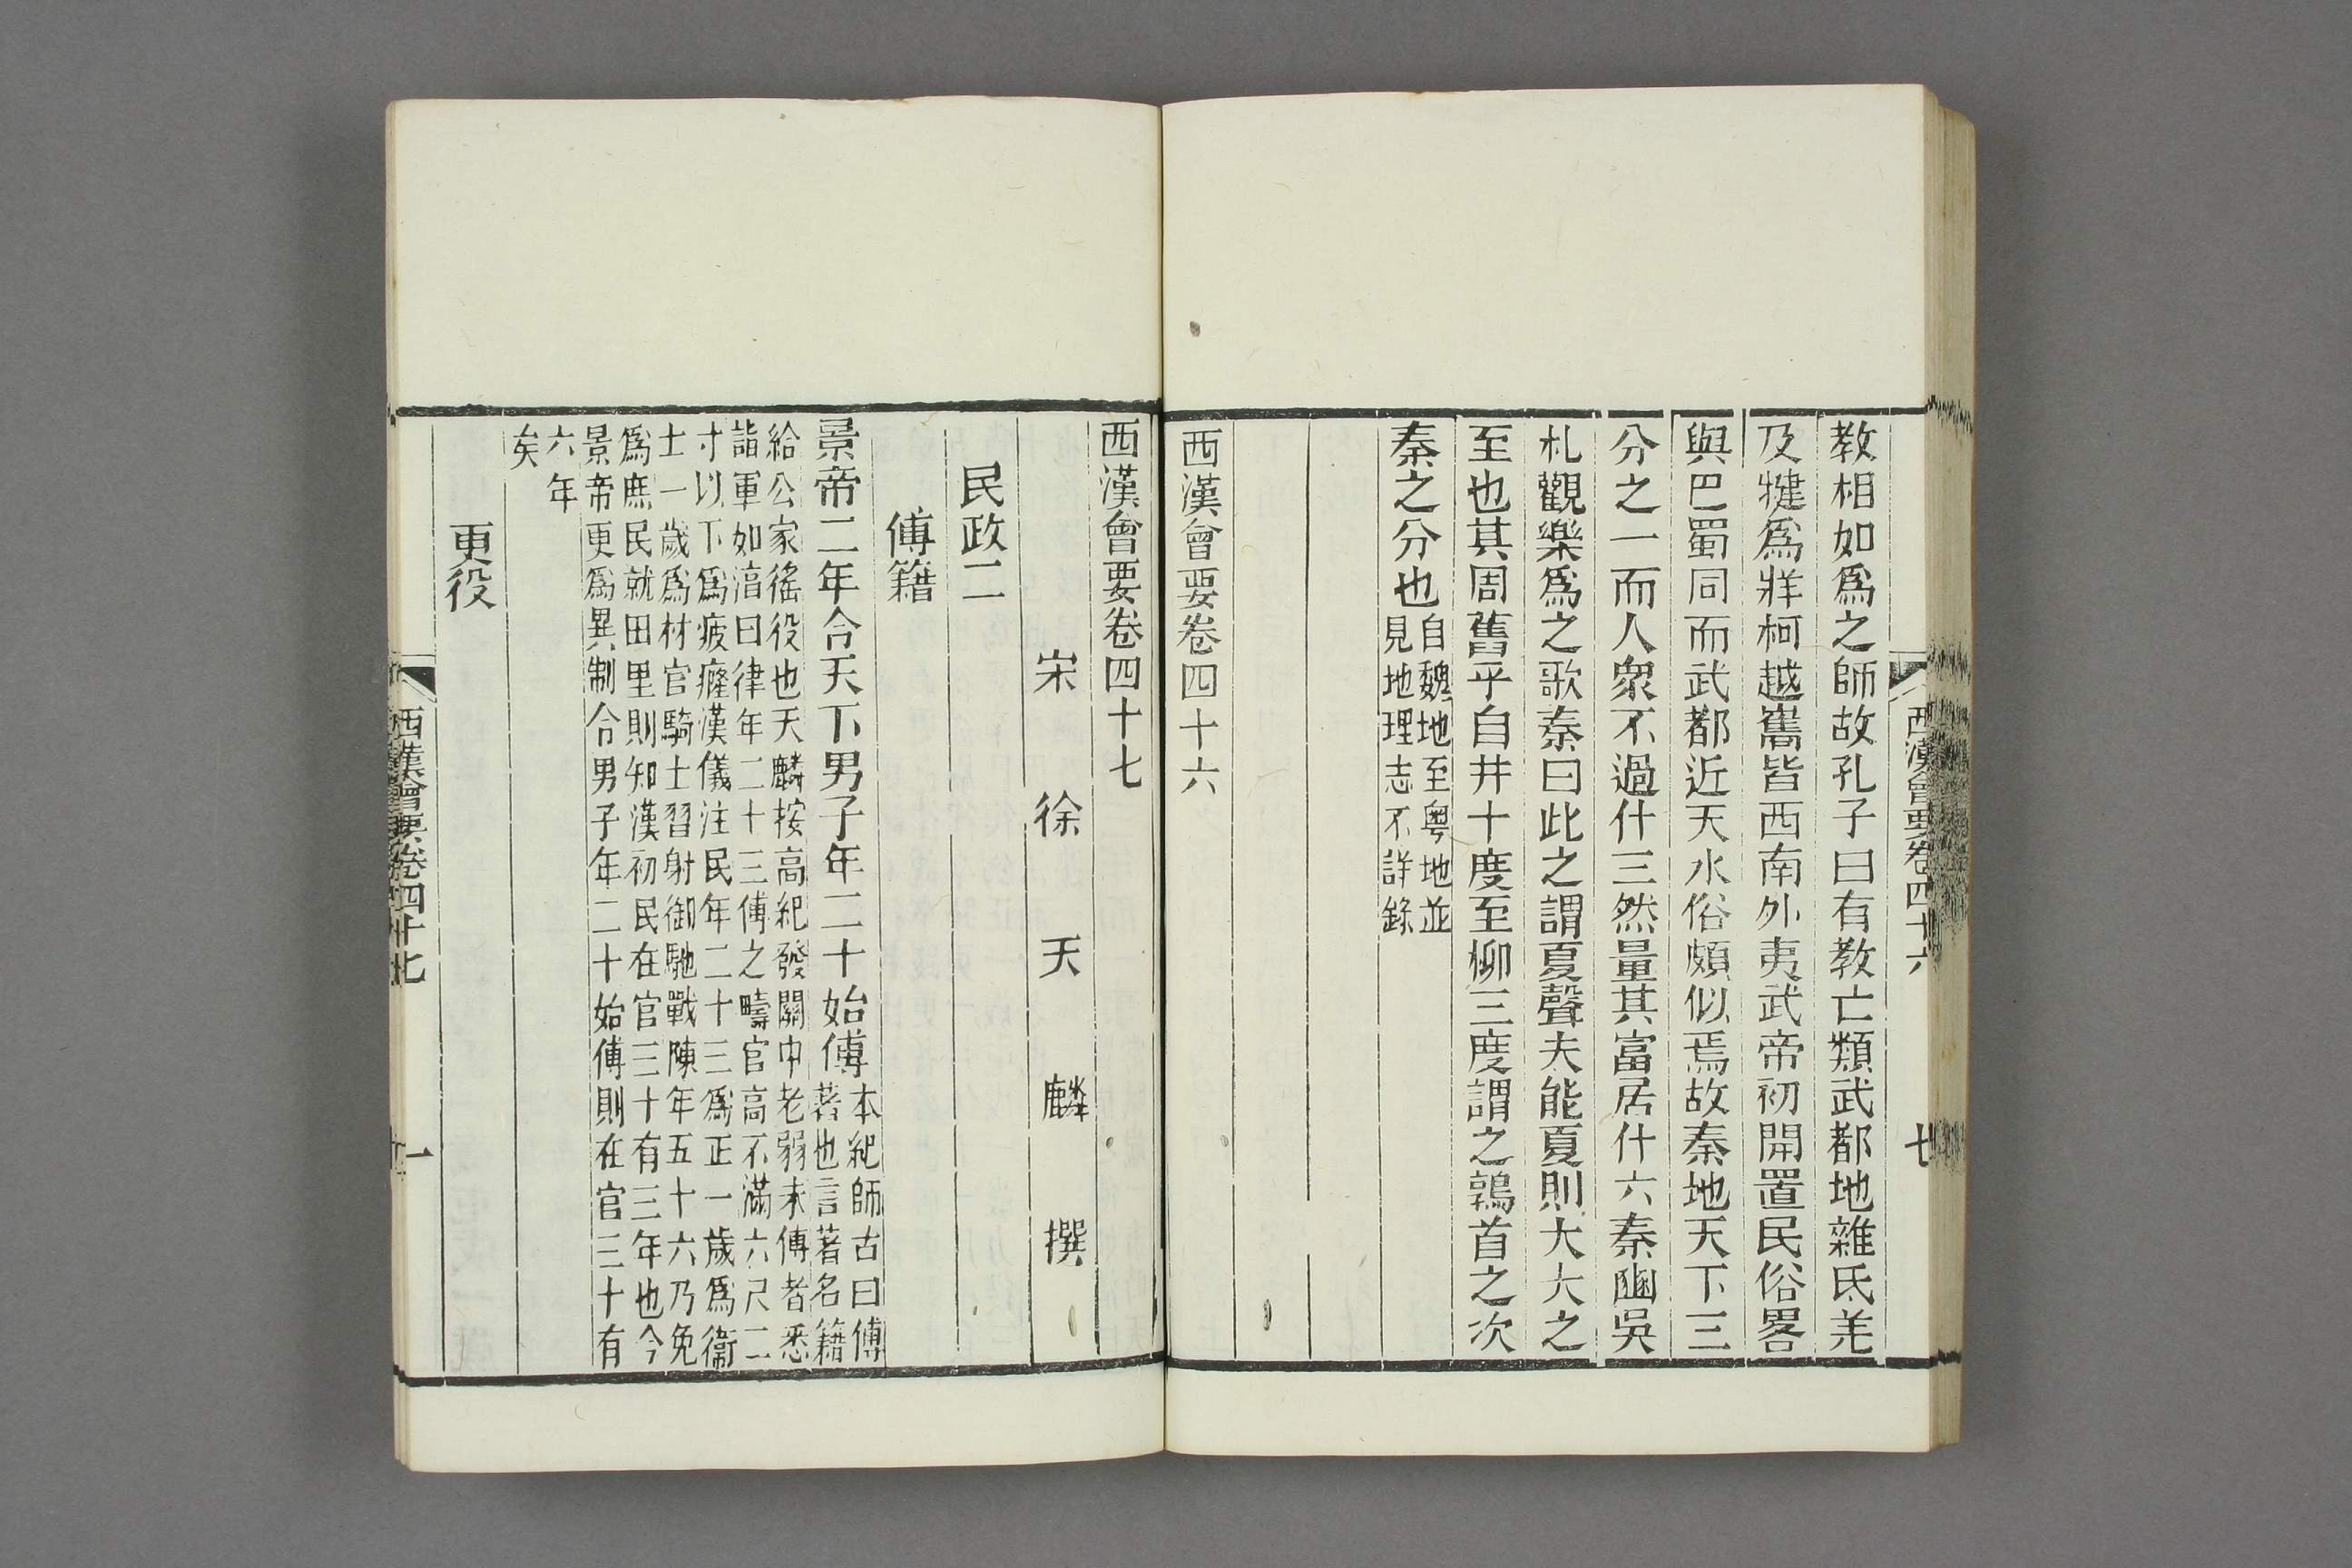 西漢會要卷四十六
教相如爲之師故孔子曰有教亡類武都地雜氐羌
及犍爲牂柯越嶲皆西南外夷武帝初開置民俗畧
與巴蜀同而武都近天水俗頗似焉故秦地天下三
分之一而人衆不過什三然量其富居什六秦豳吳
札觀樂爲之歌秦曰此之謂夏聲夫能夏則大大之
至也其周舊乎自井十度至柳三度謂之鶉首之次
秦之分也自魏地至粤地並
見地理志不詳錄
西漢會要卷四十六
西漢會要卷四十七
宋徐天麟撰
民政二
傅籍
景帝二年合天下男子年二十始傅本紀師古曰傅
著也言著名籍
給公家徭役也天麟按高紀發關中老弱未傅者悉
詣軍如淳曰律年二十三傅之疇官高不滿六尺二
寸以下爲疲癃漢儀注民年二十三爲正一歲爲衞
士一歲爲材官騎士習射御馳戰陳年五十六乃免
爲庶民就田里則知漢初民在官三十有三年也今
景帝更爲異制合男子年二十始傅則在官三十有
六年
矣
更役
西漢會要卷四十七
一